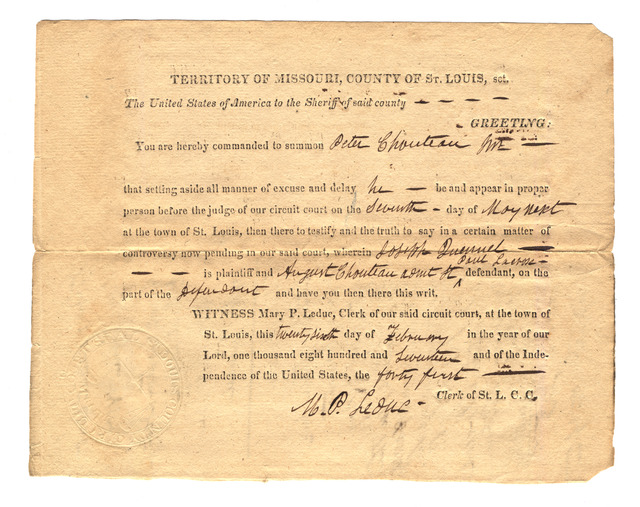 TERRITORY OF MISSOURI, COUNTY OF St. LOUIS, sct.
The United States of America to the Sheriff of said county
GREETING:
You are hereby commanded to summon Peter Chouteau
that setting aside all manner of excuse and delay he be and appear in proper
person before the judge of our circuit court on the Seventh day of May next
at the town of St. Louis, then there to testify and the truth to say in a certain matter of
controversy now pending in our said court, wherein Joseph
Paul
is plaintiff and August Chouteau admr defendant, on the
part of the Defendant and have you then there this writ.
WITNESS Mary P. Leduc, Clerk of our said circuit court, at the town of
St. Louis, this twenty sixth day of February in the year of our
Lord, one thousand eight hundred and Seventeen and of the Inde-
pendence of the United States, the forty first
M. P. Leduc Clerk of St. L. C. C.